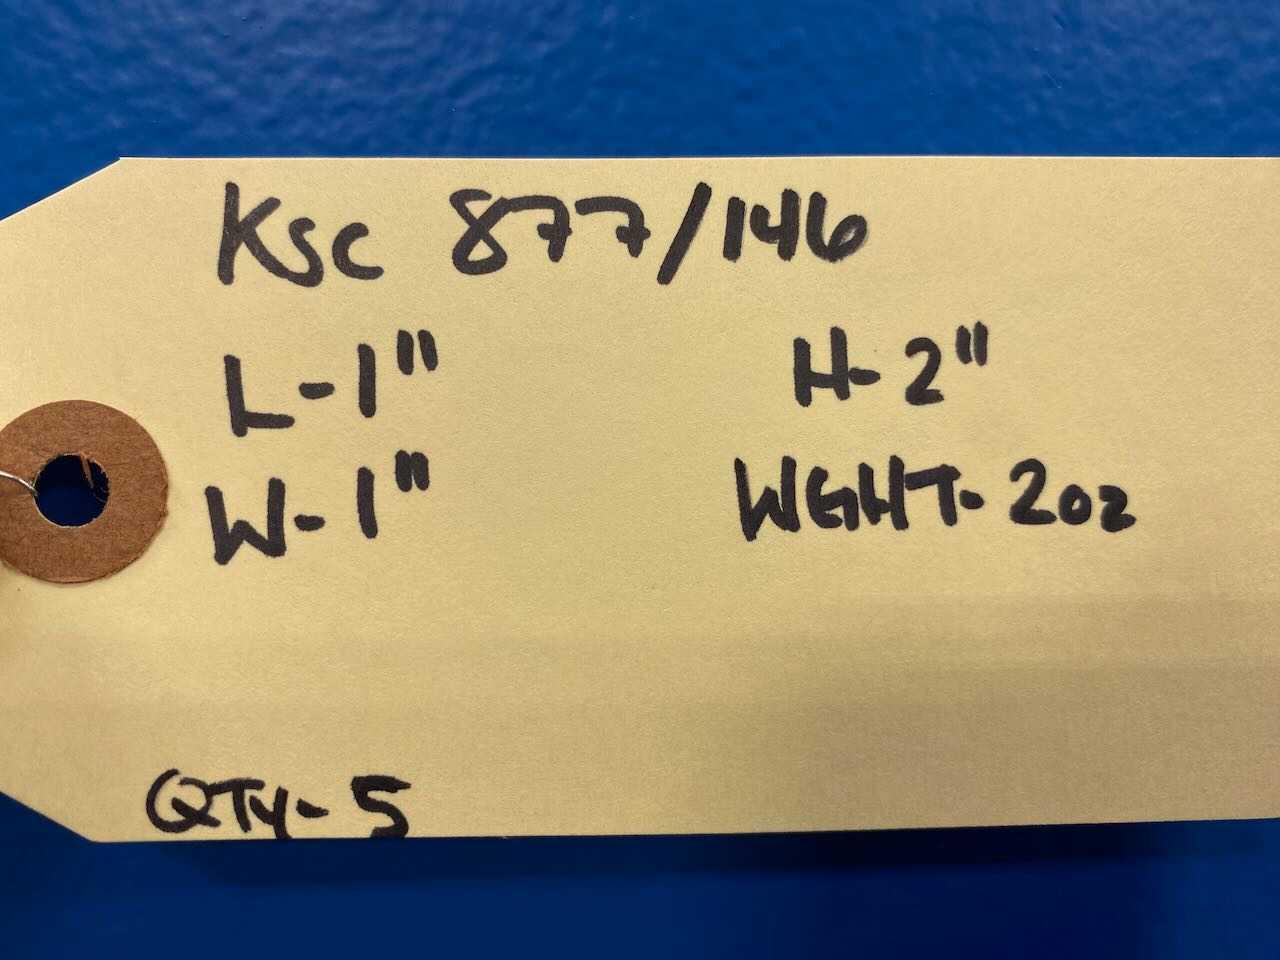 KSC 877/146
L-1" H-2"
W-1" WGHT-2oz
QTY-5